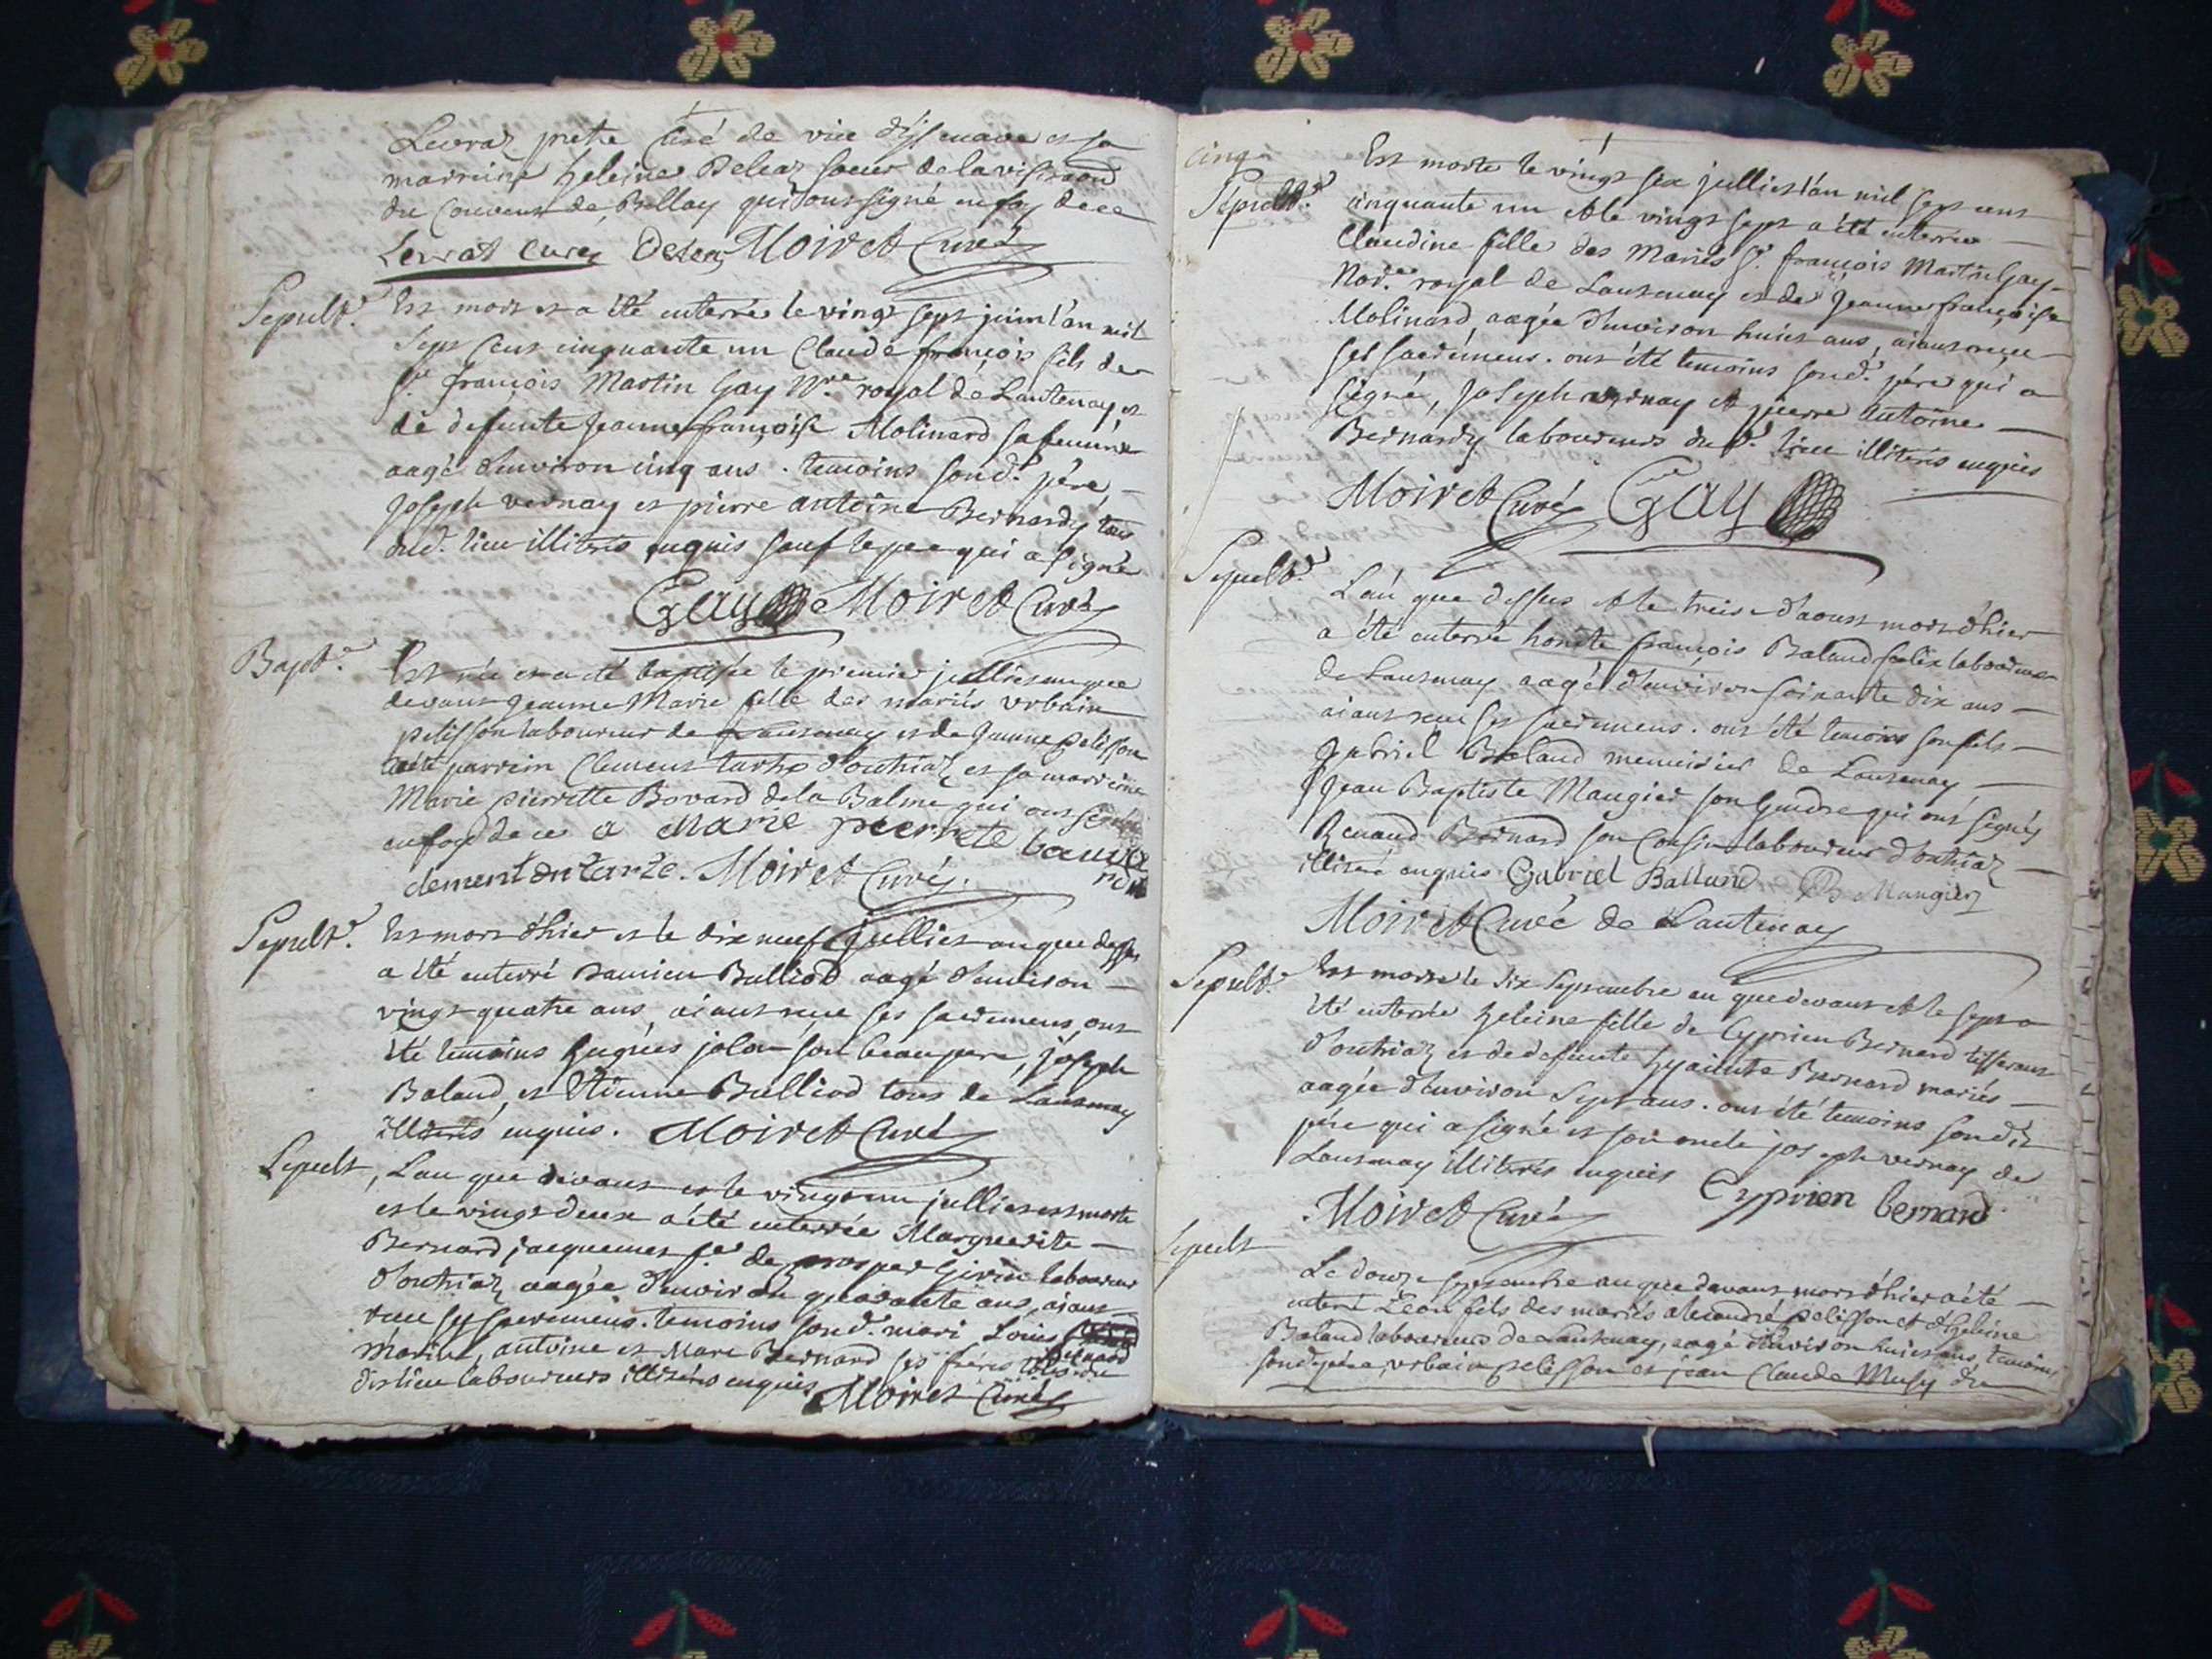 Levraz pretre Curé de vieu d'Issenave et sa
marreine heleine Deleaz soeur de la visitaon
du Couvent de Bellay qui ont signé en foy de ce
Levrat curez Deleaz Moiret Curé
Sepult.e Est mort et a été enterré le vingt sept juin l'an mil
sept cent cinquante un Claude françois fils de
s.r françois Martin Gay N.re royal de Lantenay et
de defunte Jeanne françoise Molinard sa femme
aagé d'environ cinq ans. temoins sond. père
Joseph vernay et pierre antoine Bernardy tous
dud. lieu illiterés enquis sauf le pere qui a signé
Gay Moiret Curé
Bapt.e Est née et a été baptisée le premier juilliet an que
devant Jeanne Marie fille des mariés urbain
pelisson laboureur de Lantenay et de Jeanne pelisson
parrein Clement tarhe d'outriaz et sa marreine
Marie pierrette Bovard de la Balme qui ont signé
en foy de ce a Marie pierrete bauva
clement Moiret Curé.
Sepult.e Est mort d'hier et le dix neuf Juilliet an que dessus
a été enterré Damien Bulliod aagé d'environ
vingt quatre ans, aiant reçu ses sacremens, ont
été temoins hugues jolon son beaupere, joseph
Baland, et Etienne Bulliod tous de Lantenay
illiterés enquis. Moiret Curé
Sepult, L'an que devant et le vingt un juilliet est morte
et le vingt deux a été enterrée Marguerite
Bernard jacquemet f.e de prosper Girin laboureur
d'outriaz aagée d'environ quarante ans, aiant
reçu ses sacremens. temoins sond. mari Louis
antoine et Marc Bernard ses frères
dit lieu laboureurs illiterés enquis Moiret Curé
cinq
Sepult.e Est morte le vingt six juilliet l'an mil sept cent
cinquante un et le vingt sept a été enterrée
Claudine fille des Mariés S.r françois Martin Gay
Not.e royal de Lantenay et de Jeanne françoise
Molinard, aagée d'environ huict ans, aiant reçue
ses sacremens. ont été temoins sond. père qui a
signé, Joseph vernay et pierre antoine
Bernardy laboureurs du d. lieu illiterés enquis
Moiret Curé Gay
Sepult.e L'an que dessus et le treise d'aoust mort d'hier
a été enterré honete françois Baland laboureur
de Lantenay aagé d'environ soixante dix ans
aiant reçu ses sacremens. ont été temoins son fils
Gabriel Baland menuisier de Lantenay
Jean Baptiste Maugier son Gendre qui ont signés
Renaud Bernard son Cousin laboureur d'outriaz
illiteré enquis Gabriel Balland JB Maugier
Moiret Curé de Lantenay
Sepult.e Est morte le six Septembre an que devant et le sept a
été enterrée heleine fille de Cyprien Bernard tisserant
d'outriaz et de defunte hyacinte Bernard mariés
aagée d'environ Sept ans. ont été temoins son dit
père qui a signé et son oncle joseph vernay de
Lantenay illiterés enquis Cyprien bernard
Moiret Curé
Sepult
Le douze septembre an que devant mort d'hier a été
enterré Léon fils des mariés alexandre pelisson et d'heleine
Baland laboureurs de Lantenay, aagé d'environ huict ans, temoins
sond père, urbain pelisson et jean Claude Musy du